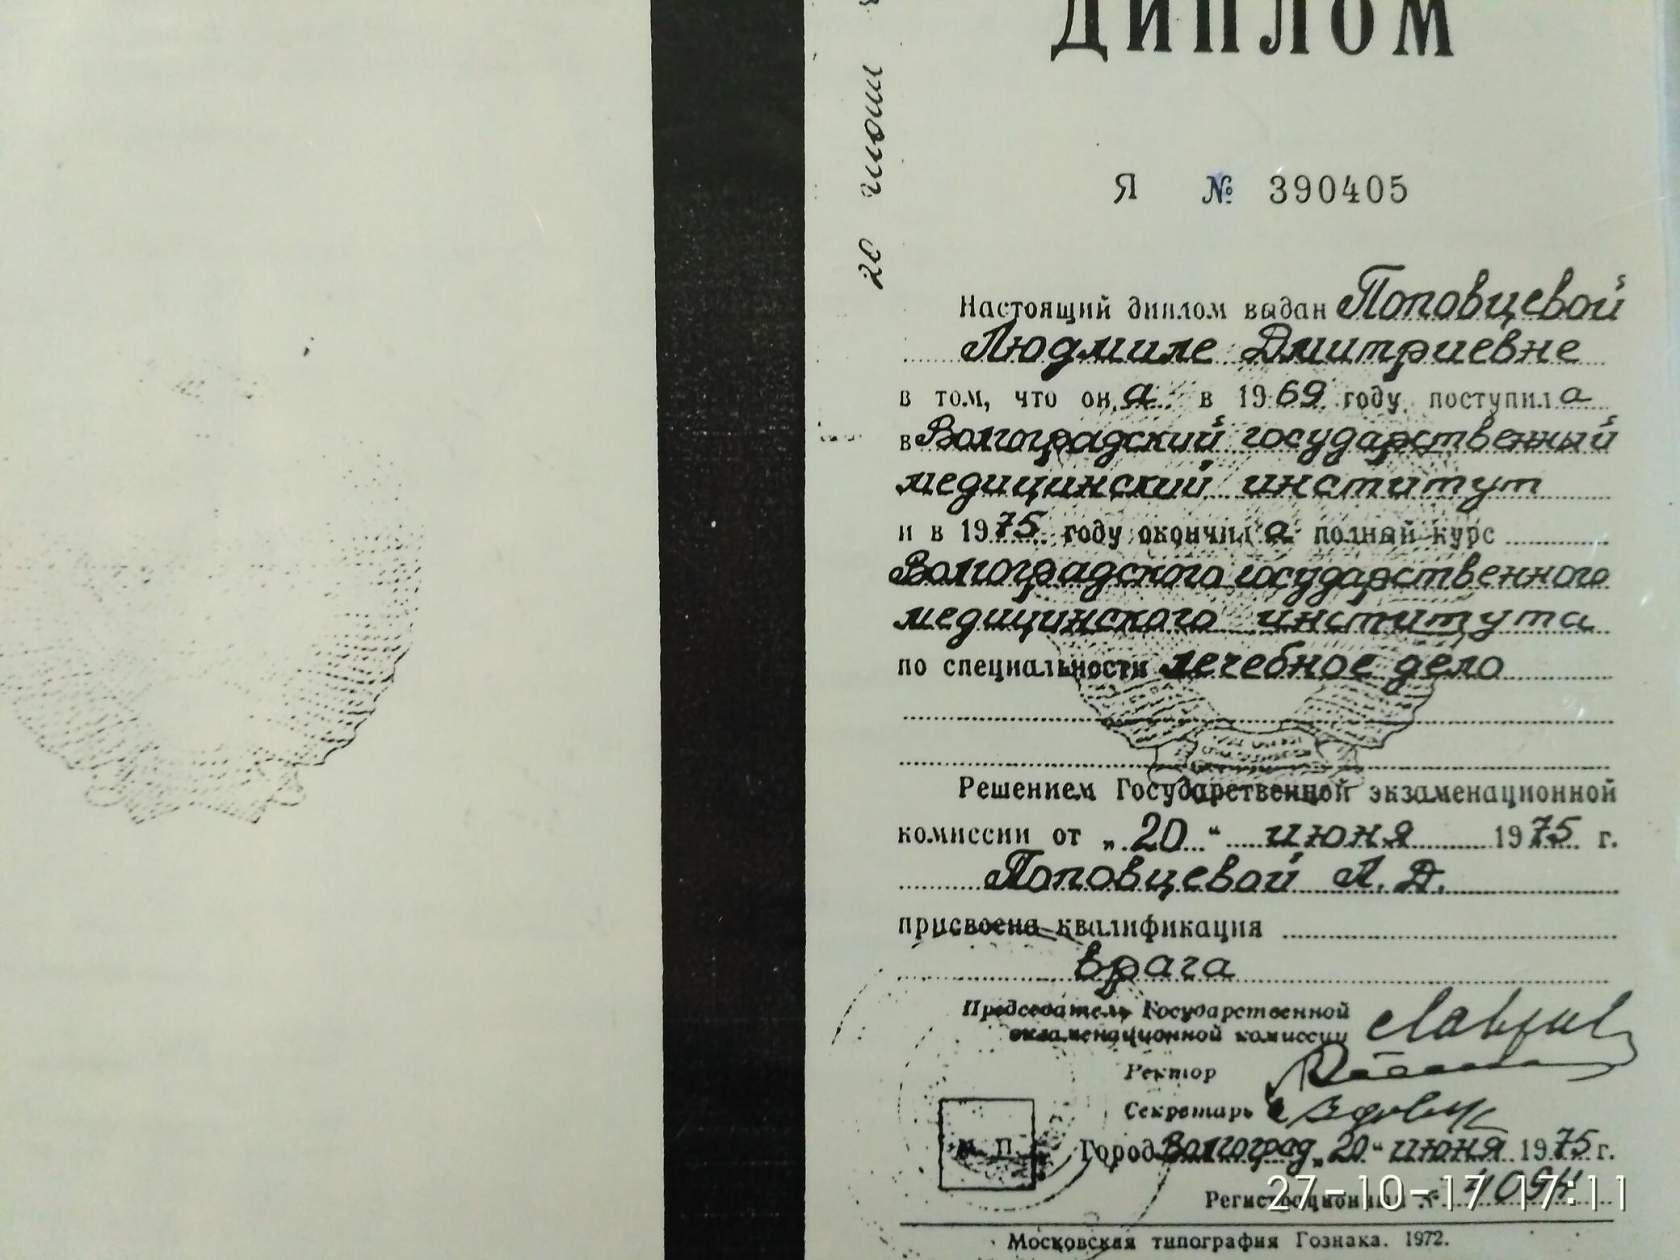 ДИПЛОМ
20 июня
Я № 390405
Настоящий диплом выдан Поповцевой
Людмиле Дмитриевне
в том, что она в 1969 году поступила
в Волгоградский государственный
медицинский институт
и в 1975 году окончила полный курс
Волгоградского государственного
медицинского института
по специальности лечебное дело
Решением Государственной экзаменационной
комиссии от „20“ июня 1975 г.
Поповцевой Л. Д.
присвоена квалификация
врача
Председатель Государственной
экзаменационной комиссии
Ректор
Секретарь
М. П.
Город Волгоград „20“ июня 1975 г.
Регистрационный №
27-10-17 17:11
Московская типография Гознака. 1972.